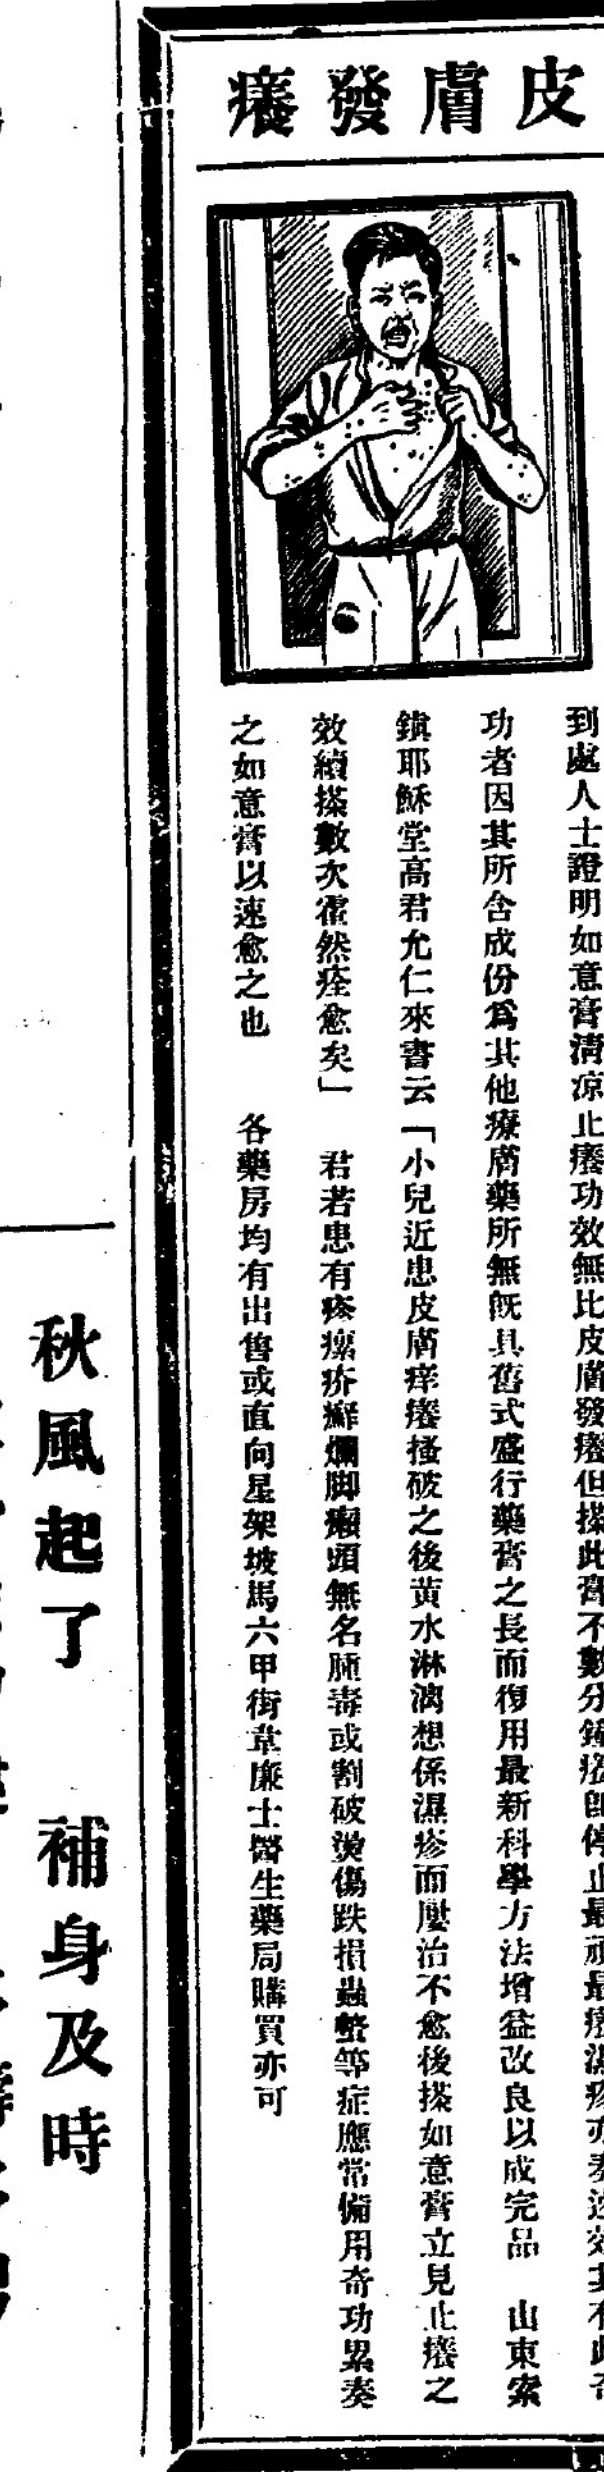 皮膚發癢
到處人士證明如意膏清凉止癢功效無比皮膚發癢但搽此膏不數分鐘癢即停止最頑最癢濕疹亦奏速效其有此奇
功者因其所含成份爲其他療膚藥所無既具舊式盛行藥膏之長而復用最新科學方法增益改良以成完品 山東索
鎮耶穌堂高君允仁來書云「小兒近患皮膚痒癢搔破之後黄水淋漓想係濕疹而屢治不愈後搽如意膏立見止癢之
效續搽數次霍然痊愈矣」 君若患有疼瘰疥癬爛脚癩頭無名腫毒或割破燙傷跌損蟲螫等症應常備用奇功累奏
之如意膏以速愈之也 各藥房均有出售或直向星架坡馬六甲街韋廉士醫生藥局購買亦可
秋風起了 補身及時